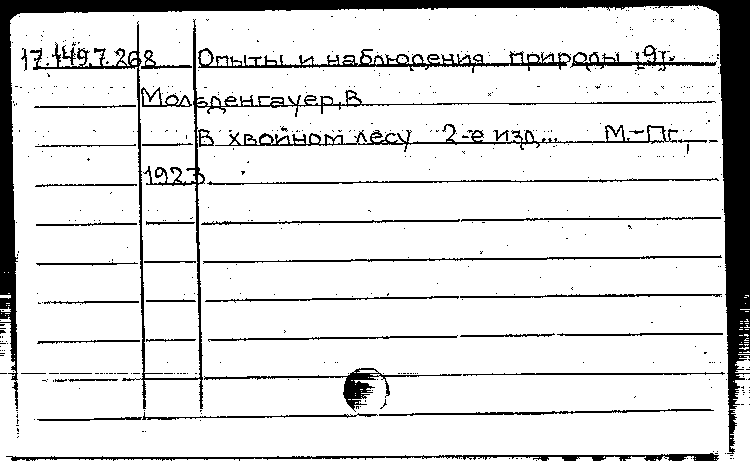 17.149.7.268 Опыты и наблюдения природы 19г.
Мольденгауер, В
В хвойном лесу 2-е изд... М.-Пг.,
1923.